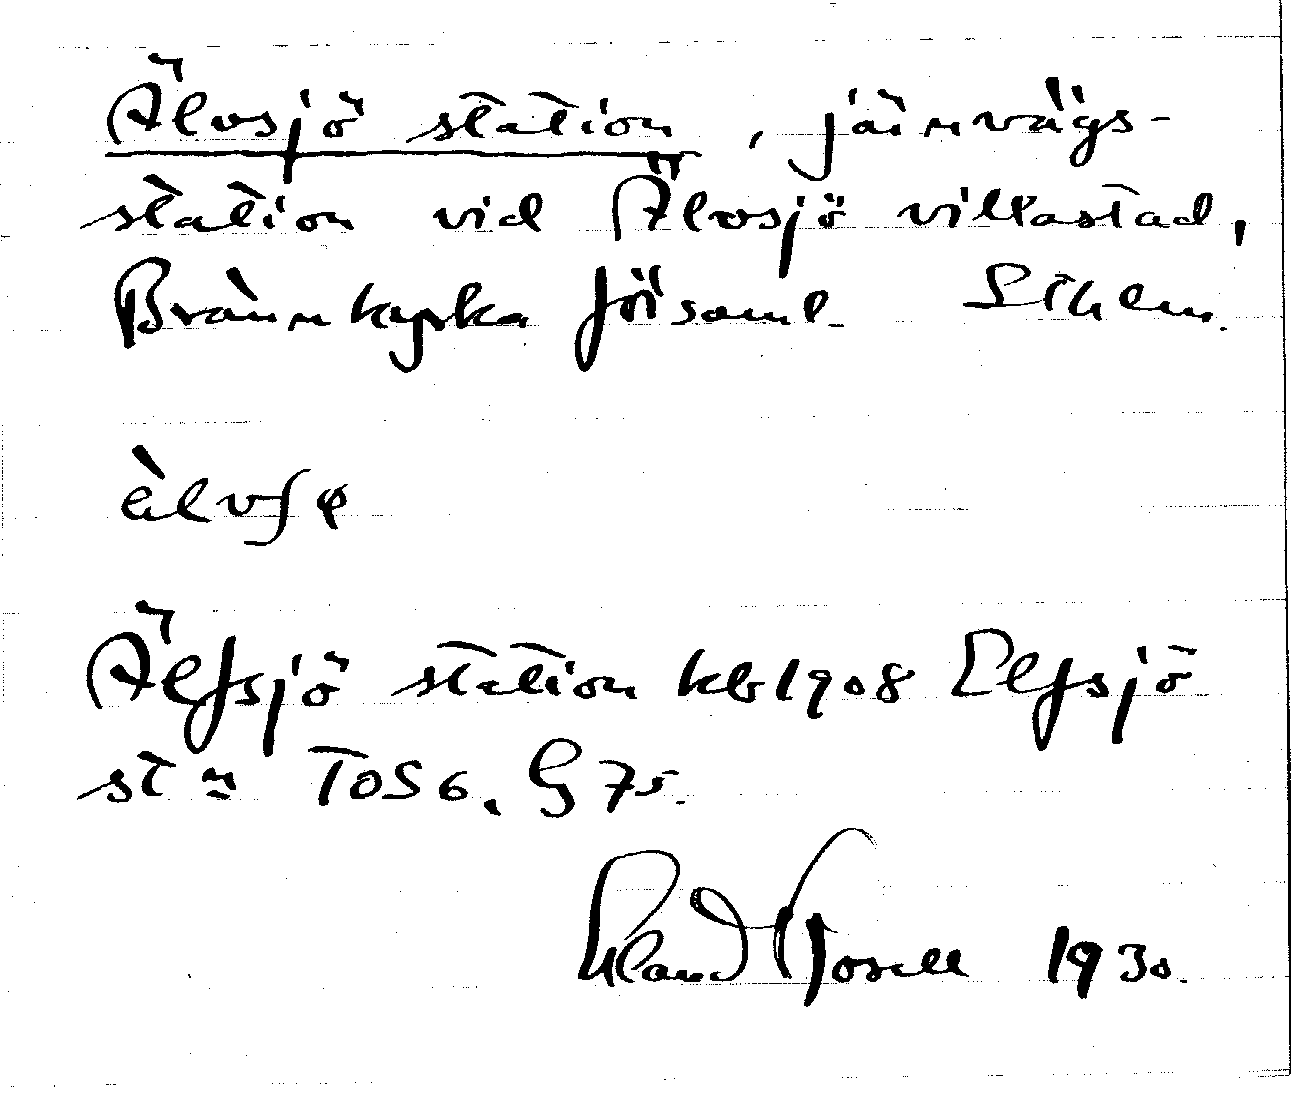 Älvsjö station, järnvägs-
station vid Älvsjö villastad,
Brännkyrkaförsaml. Sthlm.
Älfsjö station kb 1908 Elfsjö
stn TOS 6. G 75.
1930.